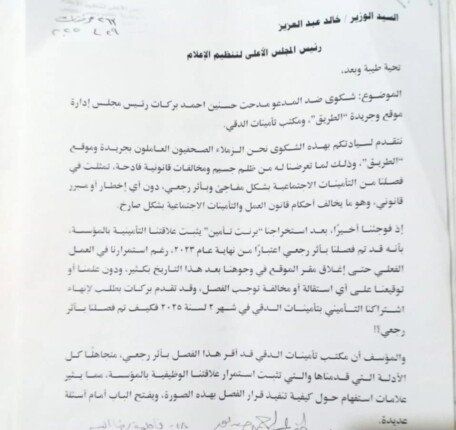 السيد الوزير / خالد عبد العزيز
رئيس المجلس الأعلى لتنظيم الإعلام
تحية طيبة وبعد،
الموضوع: شكوى ضد المدعو مدحت حسنين احمد بركات رئيس مجلس إدارة
موقع وجريدة "الطريق"، ومكتب تأمينات الدقي.
نتقدم لسيادتكم بهذه الشكوى نحن الزملاء الصحفيون العاملون بجريدة وموقع
"الطريق"، وذلك لما تعرضنا له من ظلم جسيم ومخالفات قانونية فادحة، تمثلت في
فصلنا من التأمينات الاجتماعية بشكل مفاجئ وبأثر رجعي، دون أي إخطار أو مبرر
قانوني، وهو ما يخالف أحكام قانون العمل والتأمينات الاجتماعية بشكل صارخ.
إذ فوجئنا أخيرًا، بعد استخراجنا "برنت تأمين" يثبت علاقتنا التأمينية بالمؤسسة،
بأنه قد تم فصلنا بأثر رجعي اعتبارًا من نهاية عام ٢٠٢٣، رغم استمرارنا في العمل
الفعلي حتى إغلاق مقر الموقع في وجوهنا بعد هذا التاريخ بكثير، ودون علمنا أو
توقيعنا على أي استقالة أو مخالفة توجب الفصل، وقد تقدم بركات بطلب لإنهاء
اشتراكنا التأميني بتأمينات الدقي في شهر ٢ لسنة ٢٠٢٥ فكيف تم فصلنا بأثر
رجعي؟!
والمؤسف أن مكتب تأمينات الدقي قد أقر هذا الفصل بأثر رجعي، متجاهلاً كل
الأدلة التي قدمناها والتي تثبت استمرار علاقتنا الوظيفية بالمؤسسة، مما يثير
علامات استفهام حول كيفية تنفيذ قرار الفصل بهذه الصورة، ويفتح الباب أمام أسئلة
عديدة.